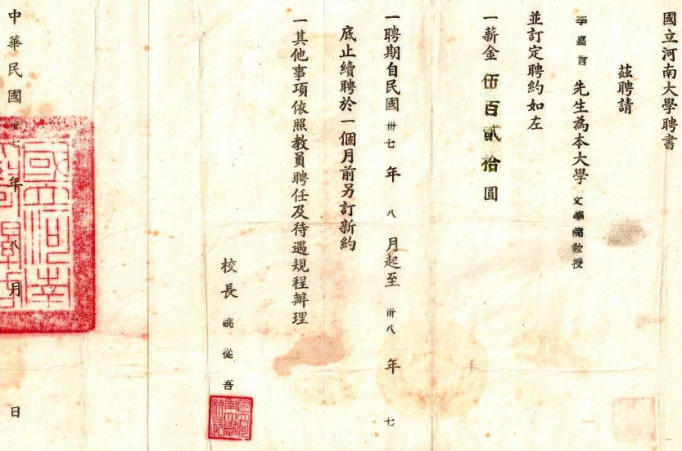 國立河南大學聘書
茲聘請
李嘉言 先生為本大學 文學院教授
並訂定聘約如左
一薪金 伍百貳拾 圓
一聘期自民國 卅七 年 八 月起至 卅八 年 七
底止續聘於一個月前另訂新約
一其他事項依照教員聘任及待遇規程辦理
校長 姚從吾
中華民國 卅七 年 八 月 日